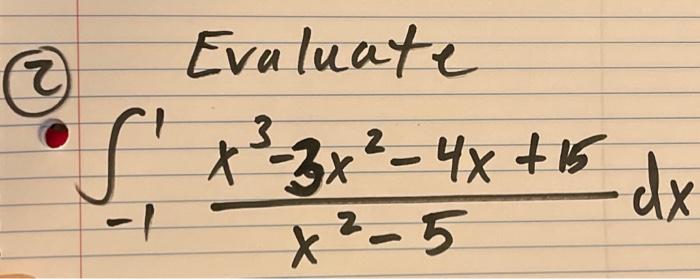 Evaluate
② ∫₋₁¹ (x³-3x²-4x+15)/(x²-5) dx